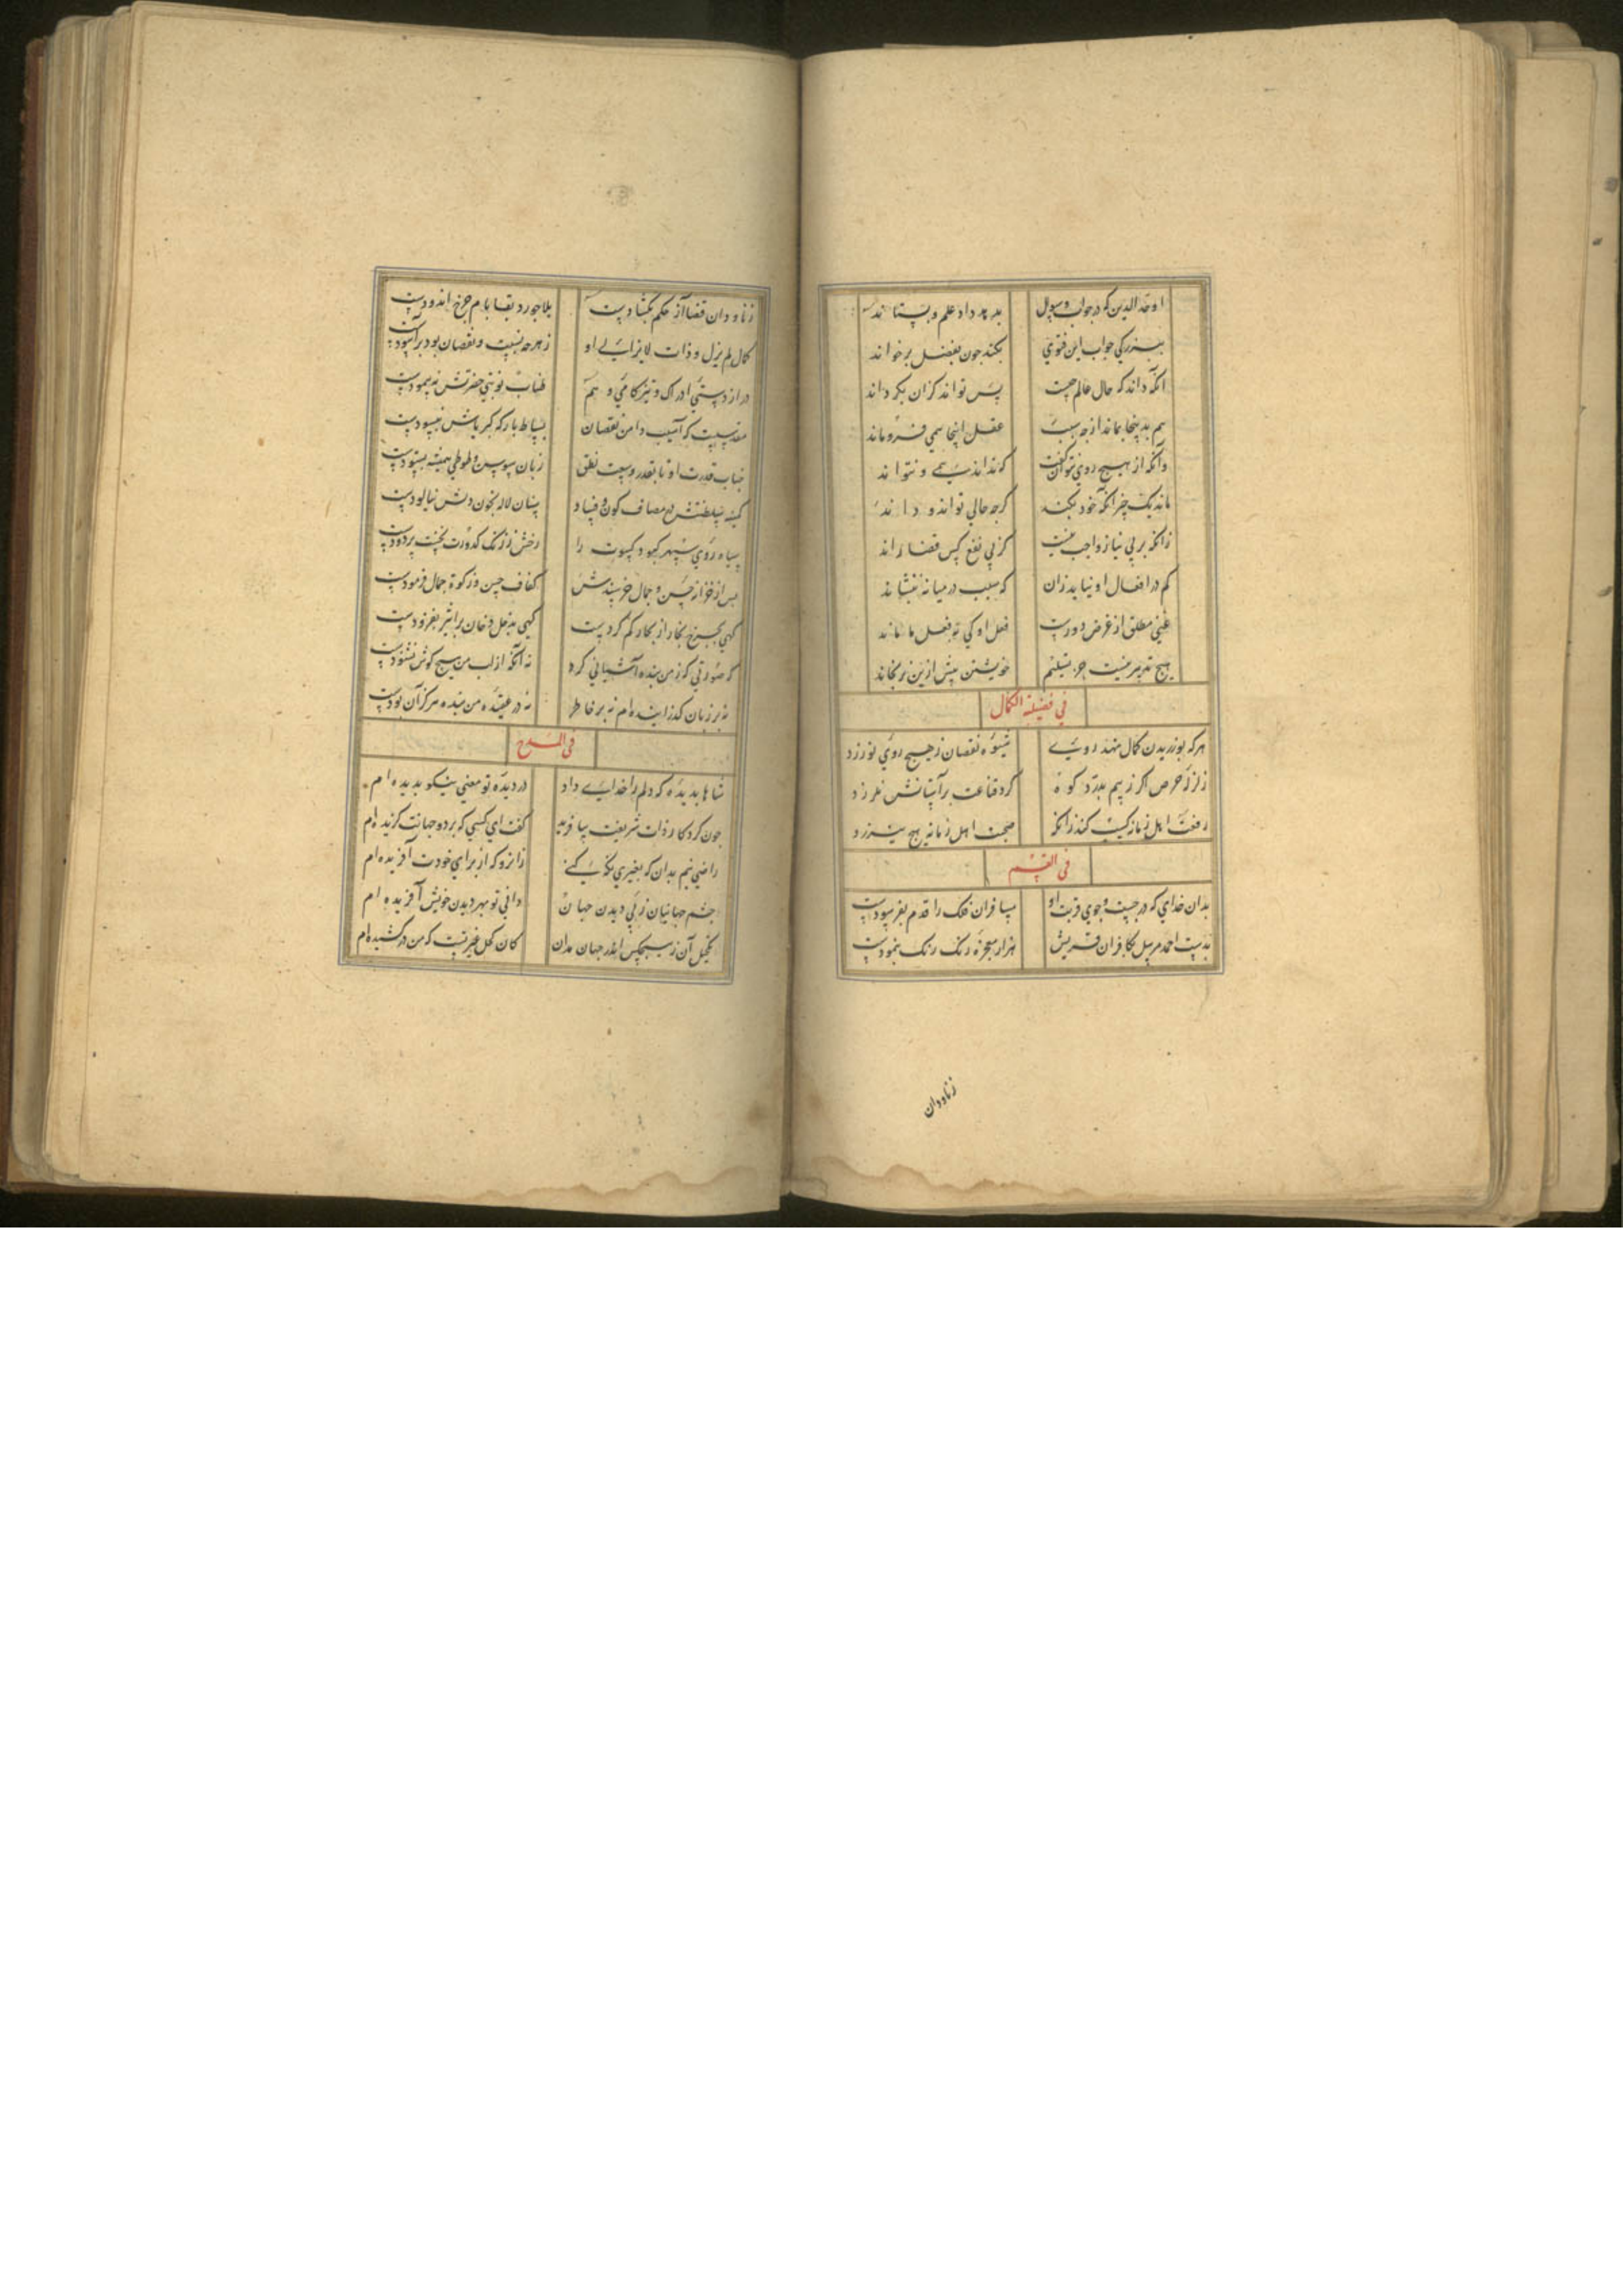 اوحد الدین که در جواب و سول بدهد داد علم و بستاند
بنزرکی جواب این فتوی بکند چون بفضل برخواند
انکه داند که حال عالم چیست پس تواند کزان بکرداند
هم بدینجا بماند از چه سبب عقل اینجا همی فروماند
وانکه از هیچ روی نتوان گفت که نداند همی و نتواند
ماند یک چیز انکه خود نکند کرچه حالی تواند و داند
زانکه بر بی نیاز واجب نیست کز پی نفع کس قضا راند
کم در افعال او نیابد زان که سبب در میانه بنشاند
غنی مطلق از غرض دورست فعل او کی بفعل ما ماند
هیچ تدبیر نیست جز تسلیم خویشتن بیش ازین نرنجاند
فی فضیلة الکمال
هرکه بورزیدن کمال نهد روی شیوه نقصان زهیچ روی نورزد
زلزله حرص اکر زهم بدرد کوه کرد قناعت بر آستانش نلرزد
رفعت اهل زمانه کسب کند زانکه صحبت اهل زمانه هیچ نیرزد
فی القسم
بدان خدای که در جست و جوی قربت او مسافران فلک را قدم بفرسودست
بدست احمد مرسل بکافران قریش هزار معجزه رنک رنک بنمودست
زناودان
زناودان قضا از حکم بکشادست بلاجورد بقا بام چرخ اندودست
کمال لم یزل و ذات لایزالی او زهرچه نسبت و نقصان بود برآسودست
دراز دستی ادراک و تیزکامی وهم طناب نوبتی حضرتش نپیمودست
مقدسیست که آسیب دامن نقصان بساط بارکه کبریاش نبسودست
جناب قدرت او تا بقدر وسعت نطق زبان سوسن و طوطی همیشه بستودست
کمینه سلطنتش در مصاف کون و فساد سنان لاله بخون دلش نیالودست
سیاه روی سپهر کبود کسوت را رخش ز زنک کدورت نخست بزدودست
پس از خزانه حسن و جمال خرسندش کفاف حسن و زکوة جمال فرمودست
کهی بچرخ بخار از بحار کم کردست کهی بدخل دخان بر اثیر بفزودست
که صورتی که ز من بنده آشیانی کرد نه آنکه از لب من هیچ کوش نشنودست
نه بر زبان کذرانیده ام نه بر خاطر نه در عقیده من بنده هرکز آن بودست
فی المدح
شاها بدیده که دلم را خدای داد در دیده تو معنی نیکو بدیده ام
چون کردکار ذات شریفت بیافرید کفت ای کسی که بر دو جهانت کزیده ام
راضی نیم بدان که بغیری نکه کنی زانرو که از برای خودت آفریده ام
چشم جهانیان زپی دیدن جهان دانی تو بهر دیدن خویش آفریده ام
تکحیل آن زهیچکس اندر جهان مدان کان کحل غیرتست که من درکشیده ام